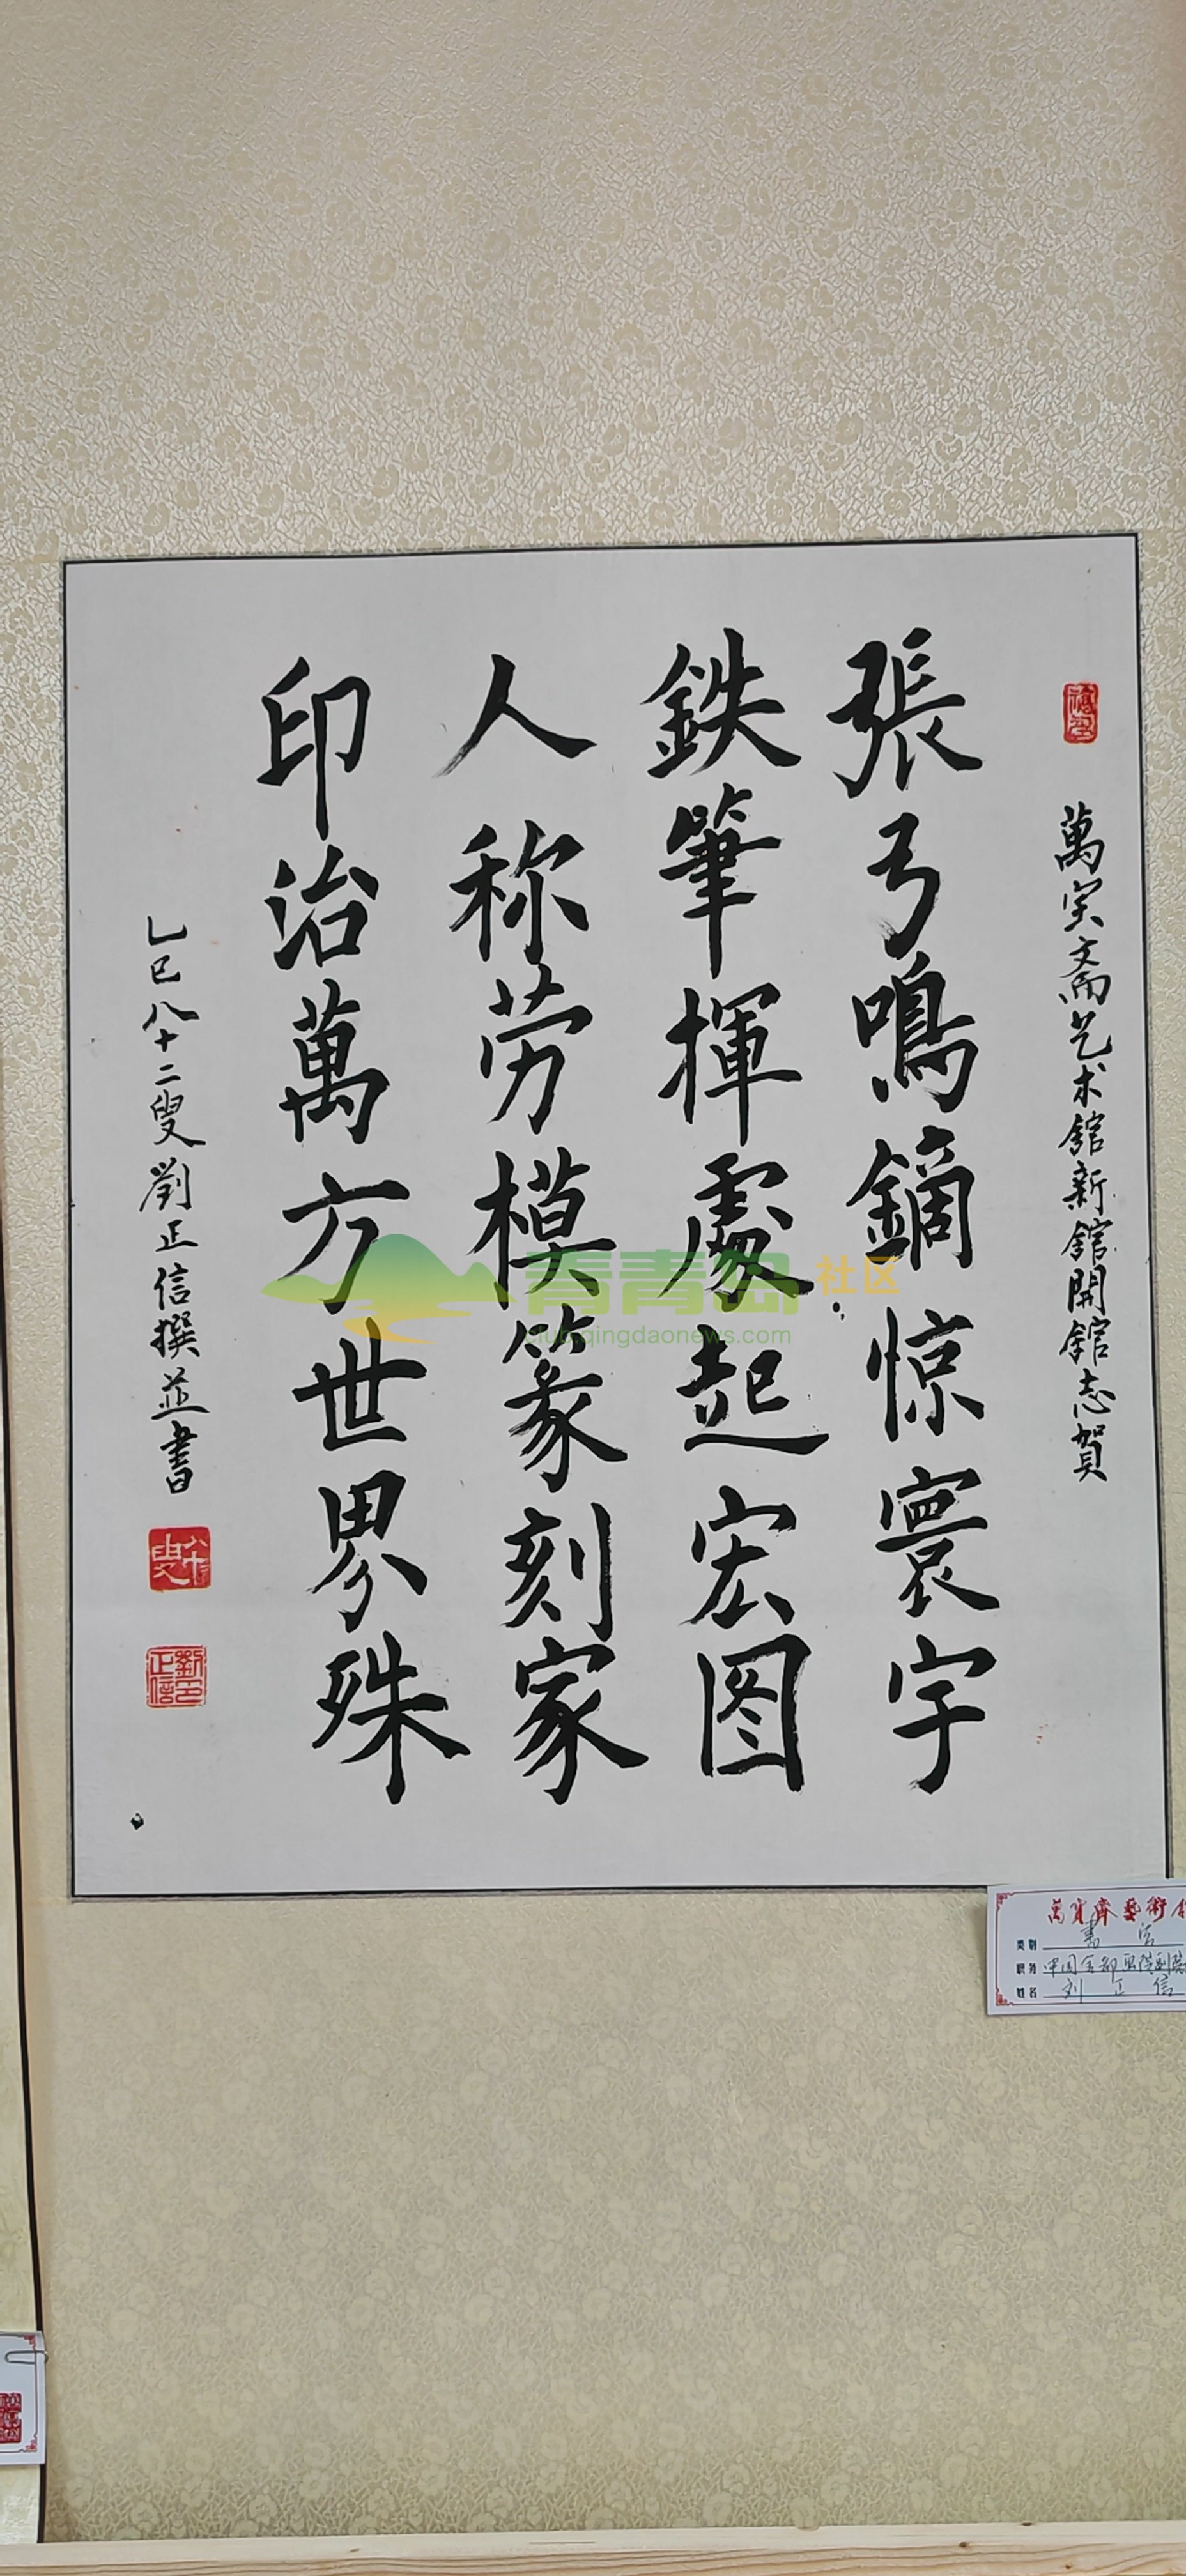 萬宝斋艺术館新館開館志賀
張弓鳴鏑惊寰宇
鉄筆揮處起宏图
人称劳模篆刻家
印治萬方世界殊
乙巳八十二叟劉正信撰並書
劉正信印
青青岛社区
club.qingdaonews.com
萬寶齋藝術
类别 書法
职务 中国
姓名 刘正信